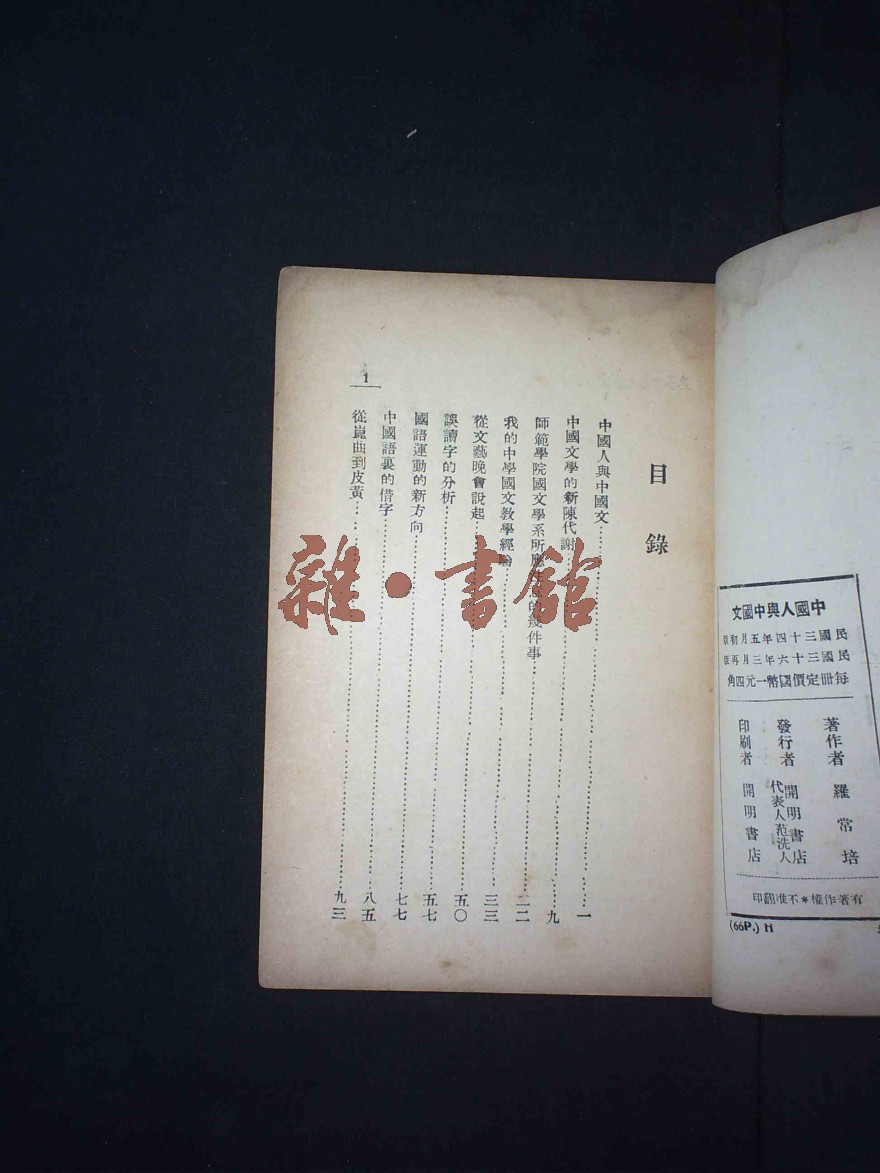 中國人與中國文
民國三十四年五月初版
民國三十六年三月再版
每冊定價國幣一元四角
著作者 羅常培
發行者 開明書店
代表人范洗人
印刷者 開明書店
有著作權*不准翻印
(66P.) H
目錄
中國人與中國文……一
中國文學的新陳代謝……九
師範學院國文學系所應注意的幾件事……二二
我的中學國文教學經驗……三三
從文藝晚會說起……五〇
誤讀字的分析……五七
國語運動的新方向……七七
中國語裏的借字……八五
從崑曲到皮黃……九三
1
雜·書館